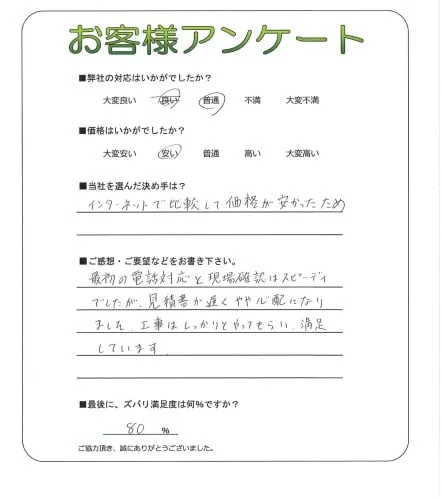 お客様アンケート
■弊社の対応はいかがでしたか？
大変良い 良い 普通 不満 大変不満
■価格はいかがでしたか？
大変安い 安い 普通 高い 大変高い
■当社を選んだ決め手は？
インターネットで比較して価格が安かったため
■ご感想・ご要望などをお書き下さい。
最初の電話対応と現場確認はスピーディ
でしたが、見積書が遅くやや心配になり
ました。工事はしっかりとやってもらい、満足
しています。
■最後に、ズバリ満足度は何％ですか？
80 %
ご協力頂き、誠にありがとうございました。